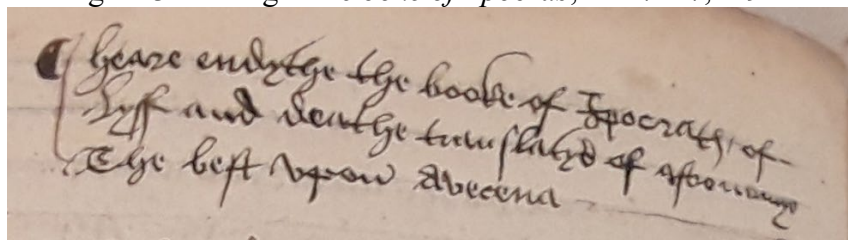 heare endythe the booke of Ipocrath, of
lyff and deathe translatyd of astronomy
The best vpon Avecena